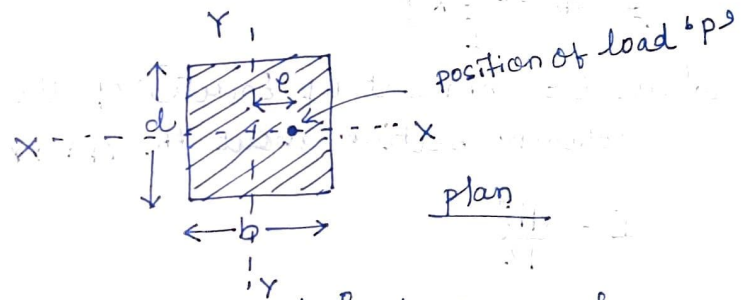 Y
position of load 'p'
e
d
X X
plan
b
Y